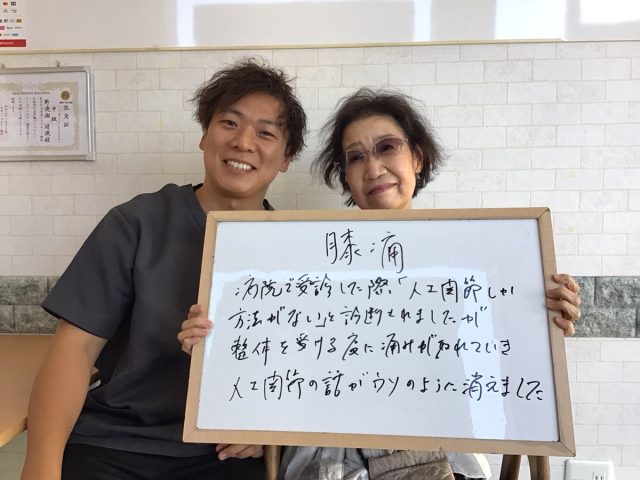 膝痛
病院で受診した際、「人工関節しか
方法がない」と診断されましたが
整体を受ける度に痛みが取れていき
人工関節の話がウソのように消えました
認定証